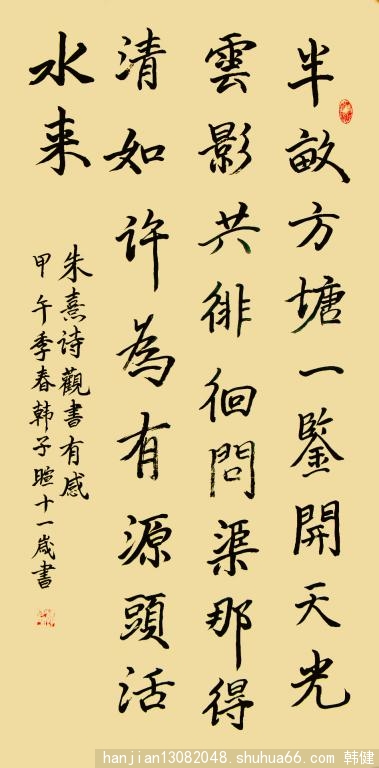 半畝方塘一鑒開天光
雲影共徘徊問渠那得
清如許為有源頭活
水来
朱熹詩觀書有感
甲午季春韩子暄十一歲書
hanjian13082048.shuhua66.com 韩健